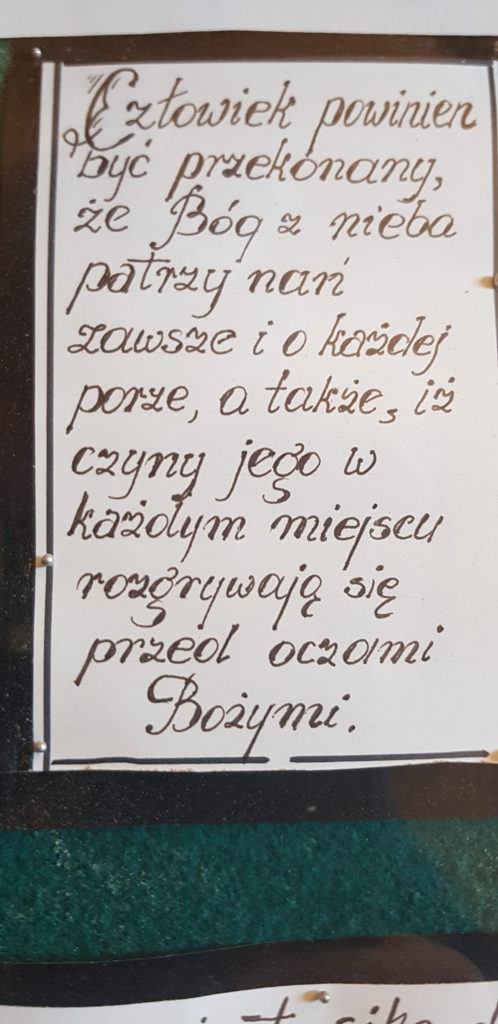 Człowiek powinien
być przekonany,
że Bóg z nieba
patrzy nań
zawsze i o każdej
porze, a także, iż
czyny jego w
każdym miejscu
rozgrywają się
przed oczami
Bożymi.